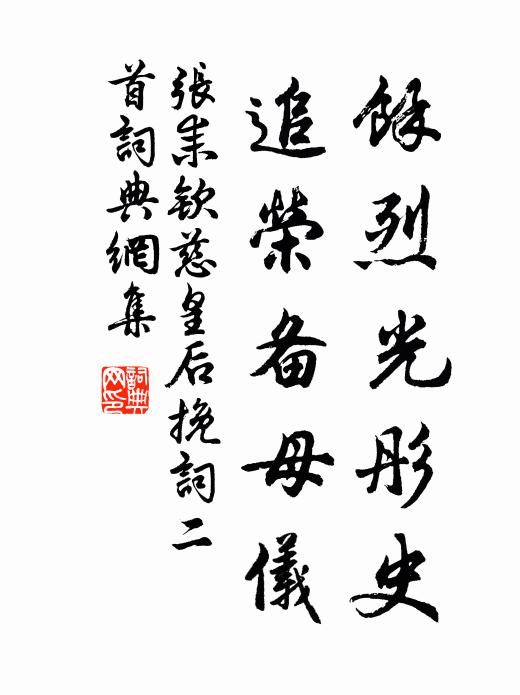 餘烈光彤史
追榮备母儀
張耒欽慈皇后挽詞二
首詞典網集
詞典
网印